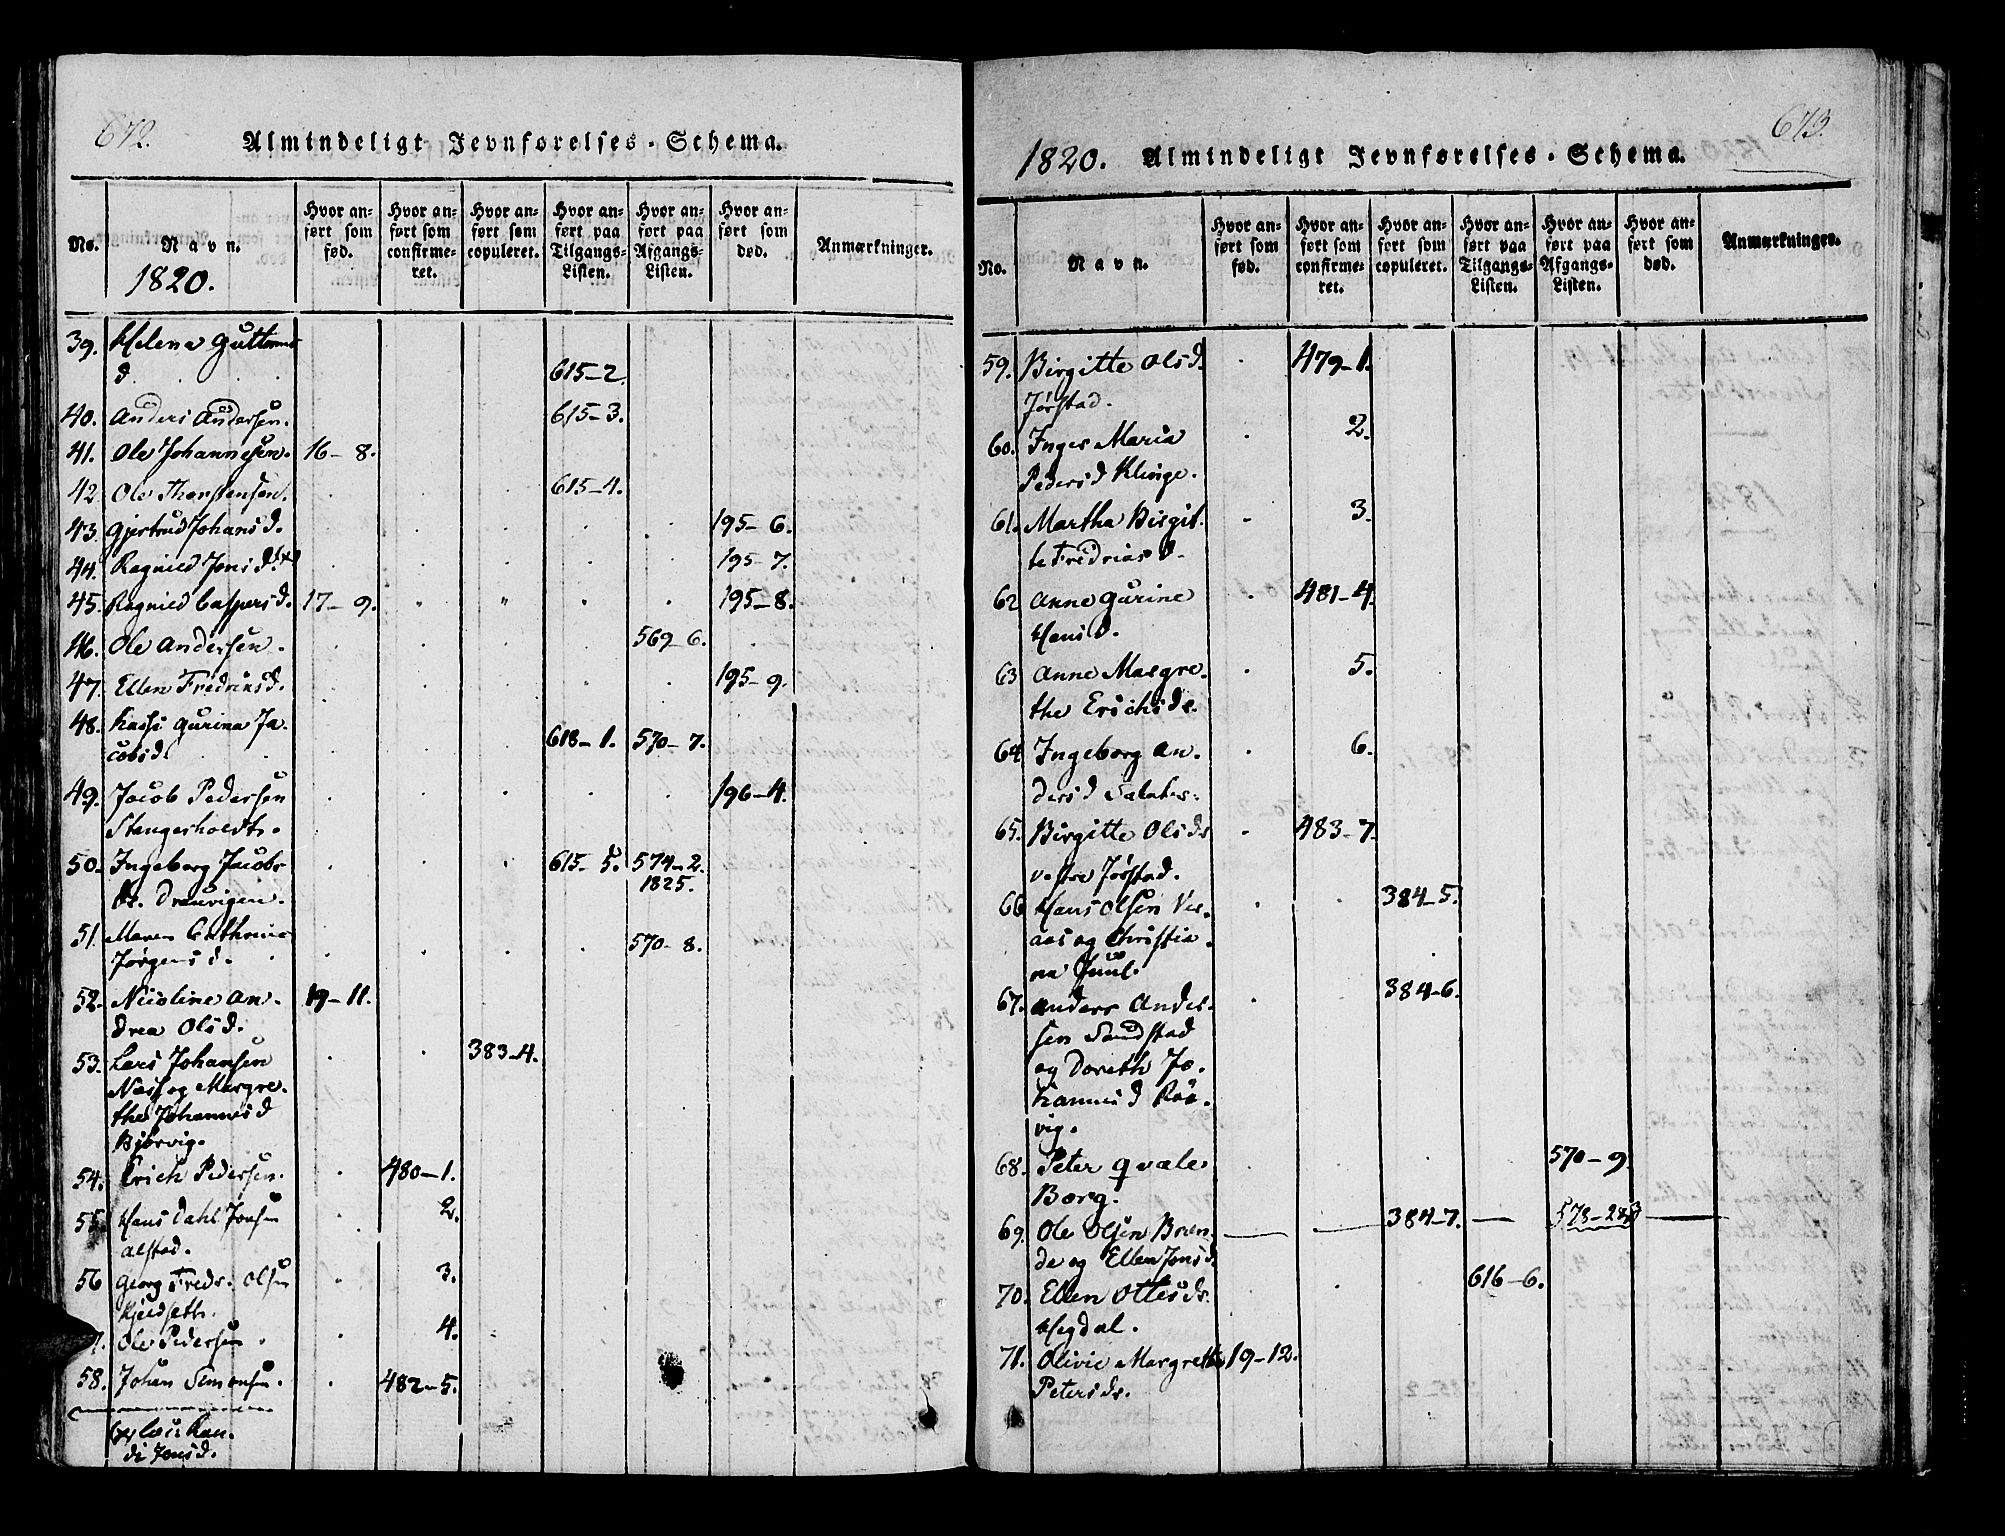 672.
Almindeligt Jevnførelses-Schema.
No.
Navn.
1820.
Hvor anført som fød.
Hvor anført som confirmeret.
Hvor anført som copuleret.
Hvor anført paa Tilgangs-Listen.
Hvor anført paa Afgangs-Listen.
Hvor anført som død.
Anmærkninger.
39. Helena Guttorms
d. 615-2.
40. Anders Andersen. 615-3.
41. Ole Johannesen. 16-8.
42 Ole Thorstensen. 615-4.
43. Gjertrud Johans d. 195-6.
44. Ragnild Jons d. 195-7.
45. Ragnild Caspers d. 17-9. 195-8.
46. Ole Andersen. 569-6.
47. Ellen Fredriks d. 195-9.
48. Kasse Gurina Ja-
cobs d. 618-1. 570-7.
49. Jacob Pedersen 196-4.
Stangersholdt.
50. Ingeborg Jacobs 615-5. 574-2.
1825.
51. Maren Cathrina
Jørgens d. 570-8.
52. Nicoline An- 19-11.
drea Ols d.
53. Lars Johansen 383-4.
Næss og Margre-
the Johannes d
Bjørvig.
54. Erich Pedersen. 480-1.
55 Hans Dahl Jonsen 2.
Alstad.
56 Georg Fredr. Olsen 3.
7. Ole Pedersen. 4.
58. Johan Simonsen. 482-5.
di Jons d.
673.
1820. Almindeligt Jevnførelses-Schema.
No.
Navn.
Hvor anført som fød.
Hvor anført som confirmeret.
Hvor anført som copuleret.
Hvor anført paa Tilgangs-Listen.
Hvor anført paa Afgangs-Listen.
Hvor anført som død.
Anmærkninger.
59. Birgitte Ols d. 479-1.
Jørstad.
60. Inger Maria 2.
Peders d Klinge.
61. Martha Birgit- 3.
te Fredriks d.
62 Anne Gurine 481-4.
Hans d.
63 Anne Margre- 5.
the Erichs d.
64 Ingeborg An- 6.
ders d
65. Birgitte Ols d. 483-7.
vestre Jørstad.
66 Hans Olsen Ver- 384-5.
aas og Christia-
na Juul.
67. Anders Ander- 384-6.
sen Sandstad
og Doreth Jo-
hannes d
vig.
68. Peter Qvale 570-9.
Borg.
69. Ole Olsen Bran- 384-7. 573-28
de og Ellen Jons d.
70. Ellen Ottes d. 616-6.
Hegdal.
71. Olivie Margrethe 19-12.
Peters d.